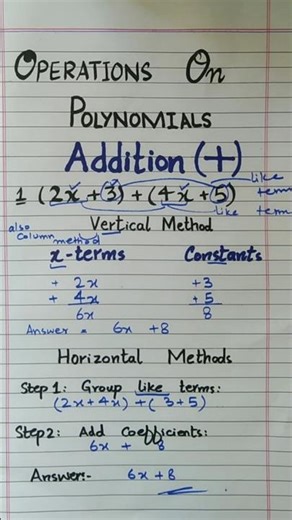 OPERATIONS ON
POLYNOMIALS
Addition (+)
like
term
1 (2x + 3) + (4x + 5)
like term
Vertical Method
also
column method
x-terms Constants
+ 2x +3
+ 4x +5
6x 8
Answer = 6x +8
Horizontal Methods
Step 1: Group like terms:
(2x+4x) + (3+5)
Step2: Add Coefficients:
6x + 8
Answer:- 6x+8